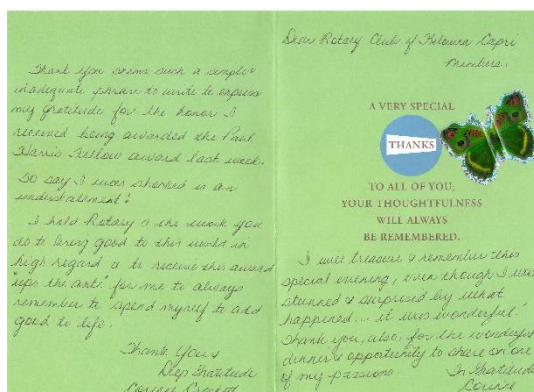 Thank you seems such a simple &
inadequate phrase to write to express
my gratitude for the honor I
received being awarded the Paul
Harris Fellow award last week.
To say I was shocked is an
understatement!
I hold Rotary & the work you
do to bring good to this world in
high regard & to receive this award
"ups the anti" for me to always
remember to spend myself to add
good to life.
Thank You &
Deep Gratitude
Dear Rotary Club of Kelowna Capri
Members,
A VERY SPECIAL
THANKS
TO ALL OF YOU;
YOUR THOUGHTFULNESS
WILL ALWAYS
BE REMEMBERED.
I will treasure & remember this
special evening, even though I was
stunned & surprised by what
happened... it was wonderful!
Thank you, also, for the wonderful
dinner & opportunity to share on one
of my passions.
In Gratitude